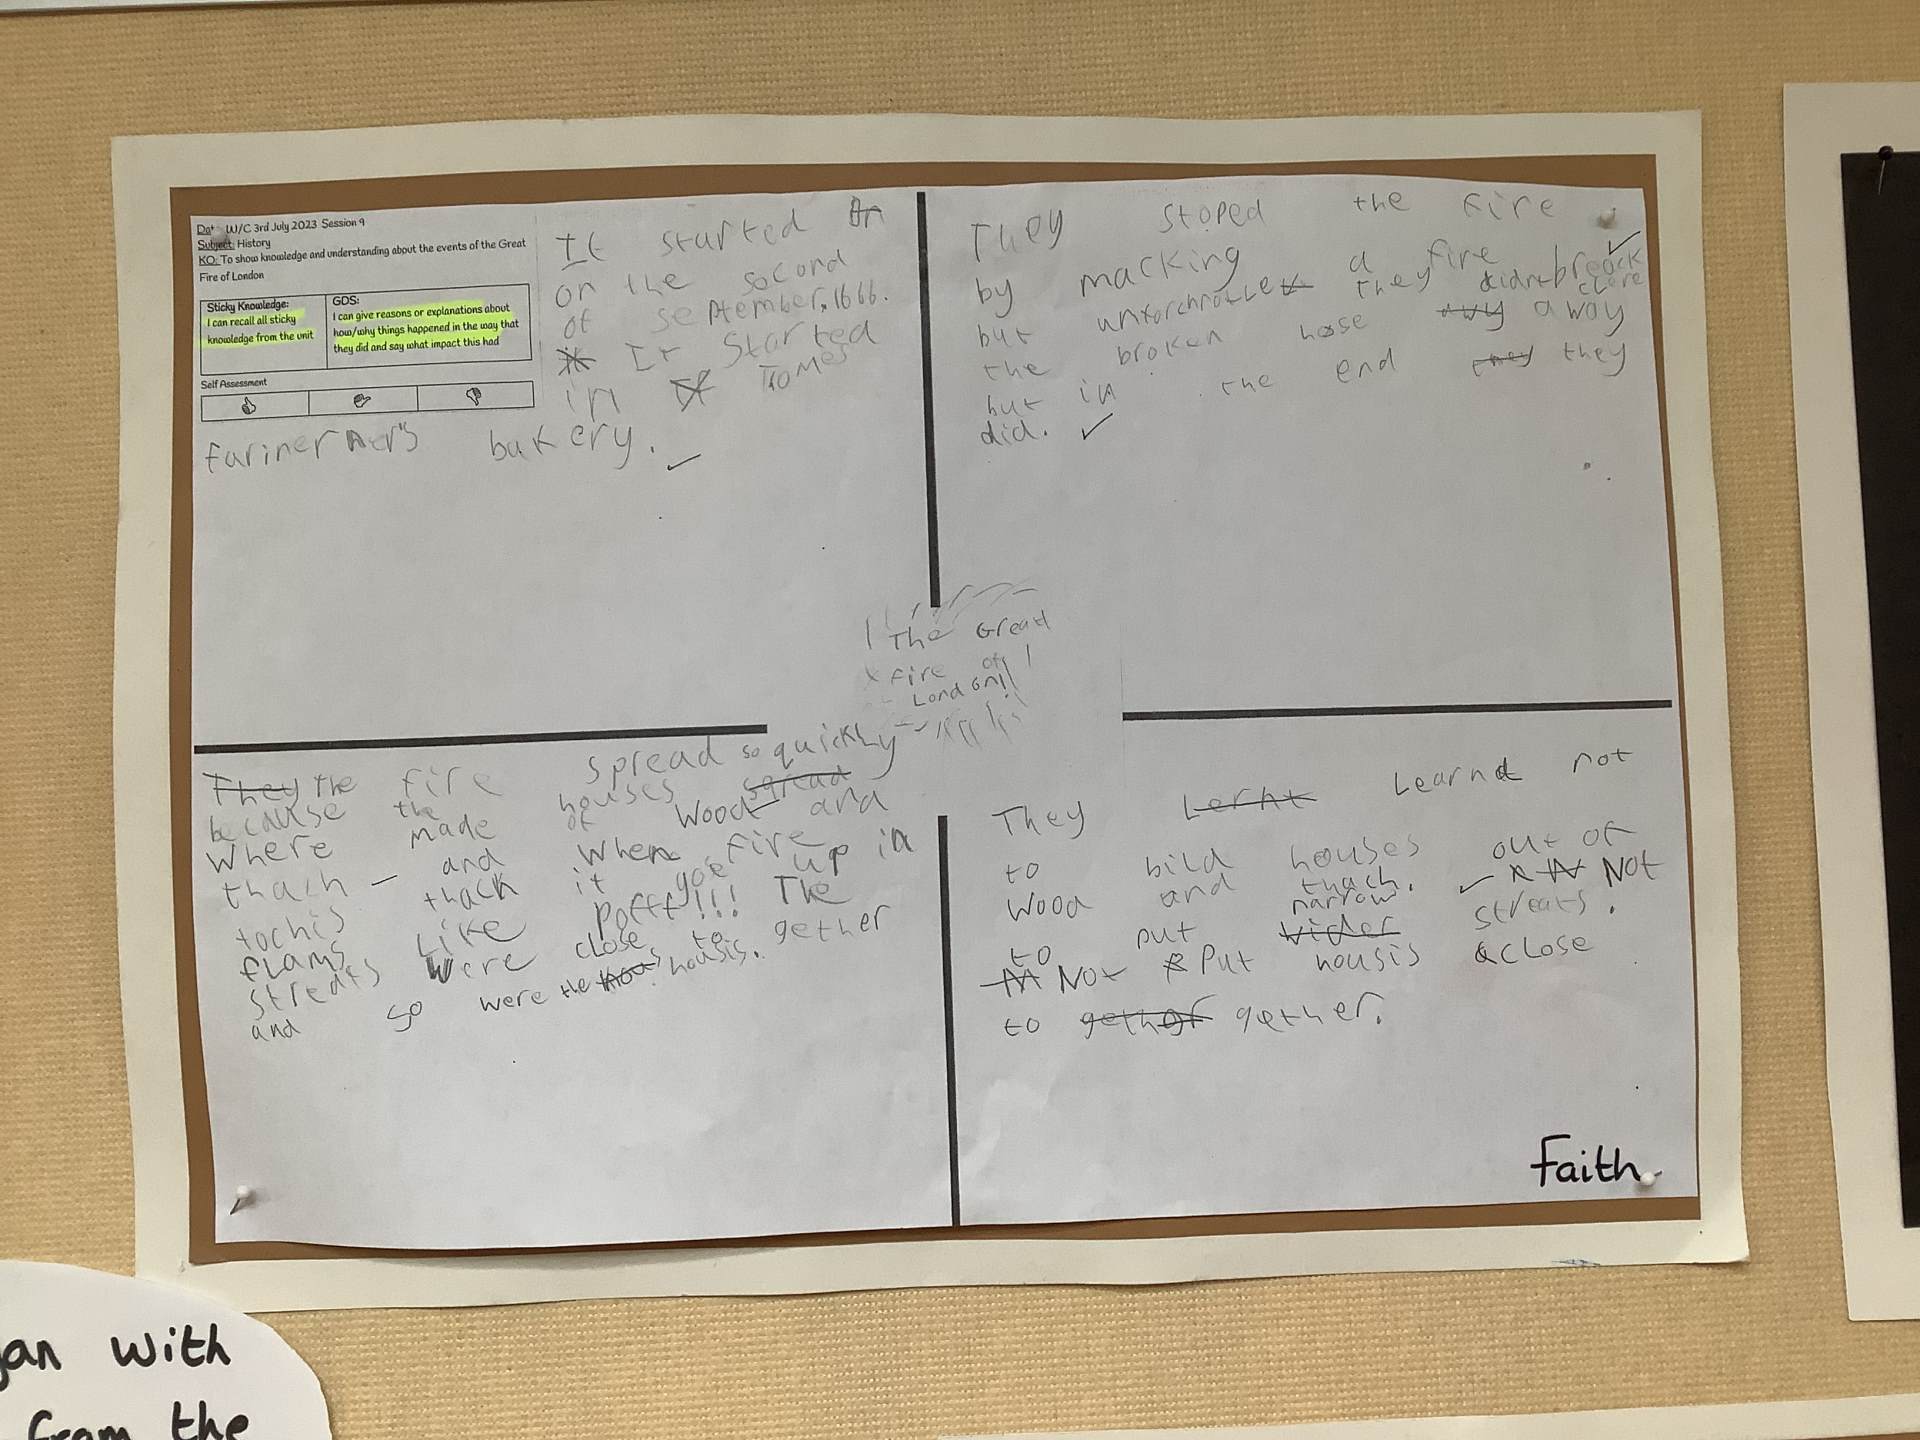 Date W/C 3rd July 2023 Session 9
Subject: History
KO: To show knowledge and understanding about the events of the Great
Fire of London
Sticky Knowledge:
I can recall all sticky
knowledge from the unit
GDS:
I can give reasons or explanations about
how/why things happened in the way that
they did and say what impact this had
Self Assessment
It started
on the socond
of september, 1666.
It Started
in Tomes
farinerner's bakery.
They stoped the fire
by macking a fire break
but untorchnatle they didnt clere
the broken hose away
but in the end they
did.
The Great
Fire of
London!
They the fire spread so quickly
because the houses spread
Where made of Wood and
thach and When fire
tochis thack it goe up in
flams Like pofff!!! The
streats Were close to gether
and so were the housis.
They Lernt Learnd not
to bild houses out of
Wood and thach. Not
to put wider narrow streats.
Not Put housis close
to gether gether.
Faith
an with
from the